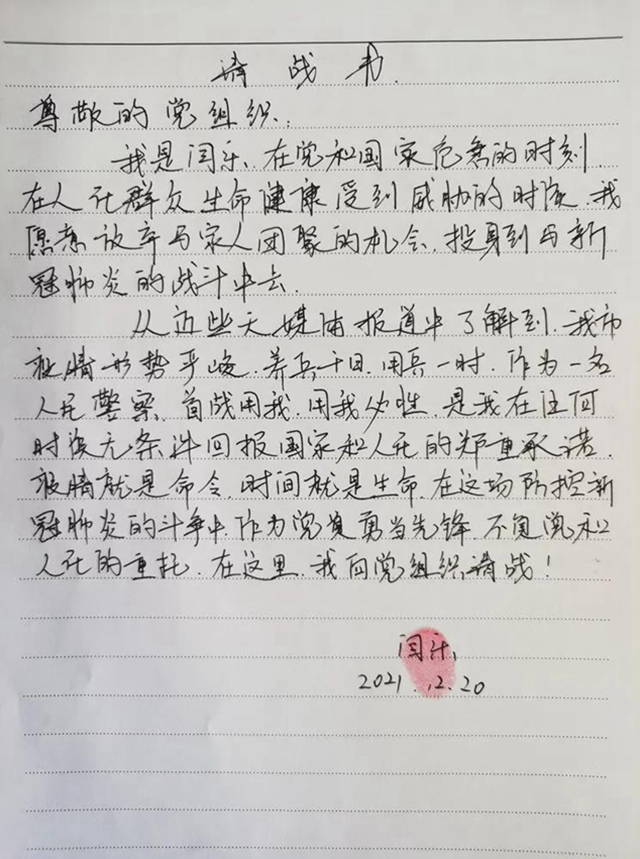 请战书
尊敬的党组织:
我是闫乐、在党和国家危急的时刻.
在人民群众生命健康受到威胁的时候.我
愿意放弃与家人团聚的机会、投身到与新
冠肺炎的战斗中去.
从近些天媒体报道中了解到.我市
疫情形势严峻.养兵千日.用兵一时.作为一名
人民警察.首战用我.用我必胜.是我在任何
时候无条件回报国家和人民的郑重承诺.
疫情就是命令.时间就是生命.在这场防控新
冠肺炎的斗争中.作为党员勇当先锋.不负党和
人民的重托.在这里.我向党组织请战!
闫乐
2021.12.20